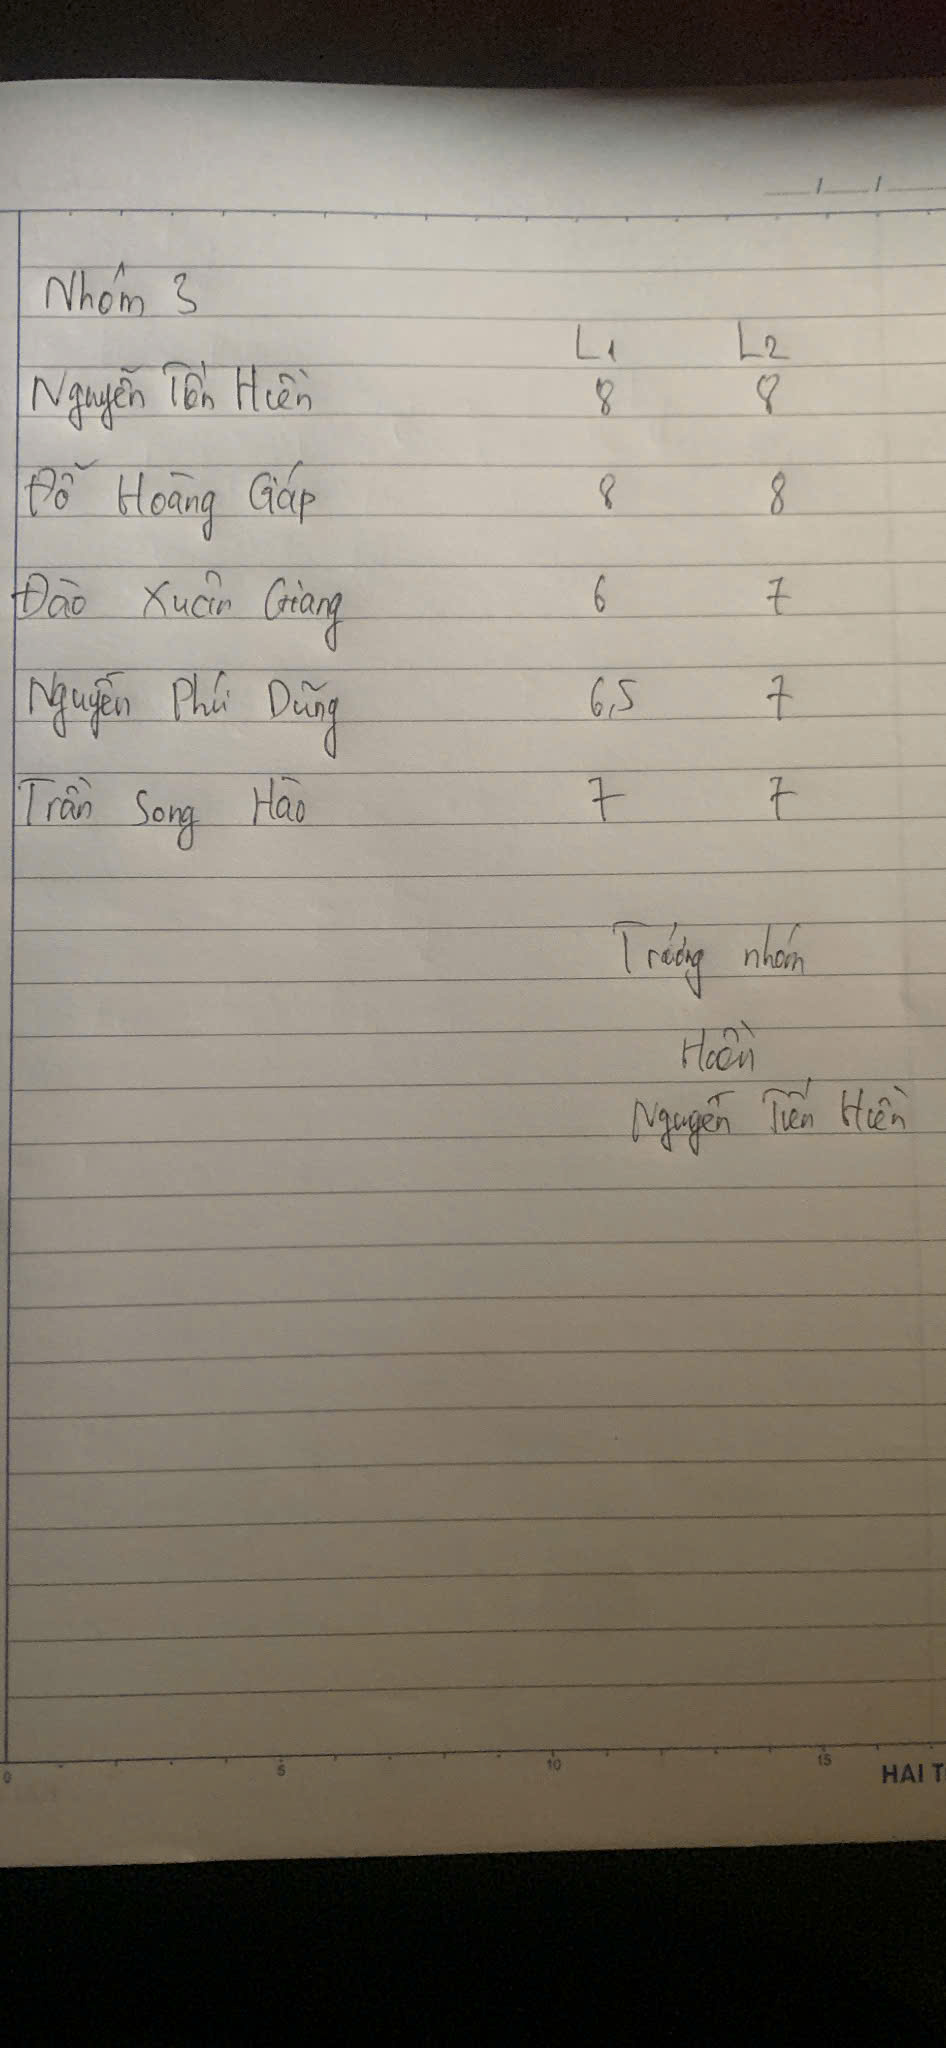 Nhóm 3
L1 L2
Nguyễn Tiến Hiền 8 8
Đỗ Hoàng Gáp 8 8
Đào Xuân Giang 6 7
Nguyễn Phú Dũng 6,5 7
Trần Song Hào 7 7
Trưởng nhóm
Hiền
Nguyễn Tiến Hiền
0 5 10 15
HAI T